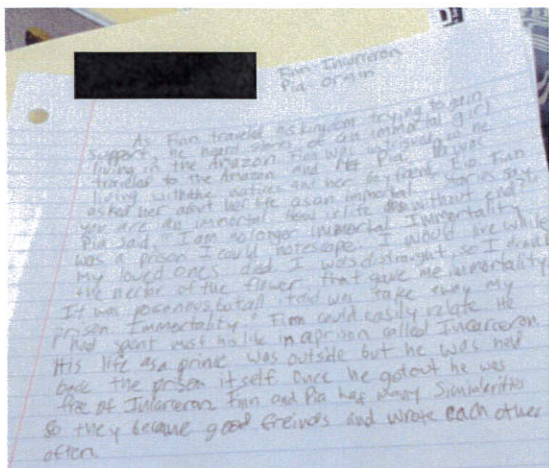 Finn-Incarceron
Pia-Origin
As Finn traveled his kingdom trying to gain
support he heard stories of an immortal girl
living in the Amazon Finn was so he
traveled to the Amazon and met Pia. Pia was
living with the natives and her boyfriend, Eio. Finn
asked her about her life as an immortal. stories say
you are an immortal how is life without end?"
Pia said, "I am no longer immortal. Immortality
was a prison I could not escape. I would live while
my loved ones died I was distraught, so I drank
the nector of the flower that gave me immortality
It was to all told was take away my
prison Immortality." Finn could easily relate He
had spent most his life in a prison called Incarceron
His life as a prince was outside but he was held
back the prison itself. Once he got out he was
free of Incarceron Finn and Pia had many
so they became good freinds and wrote each other
often.